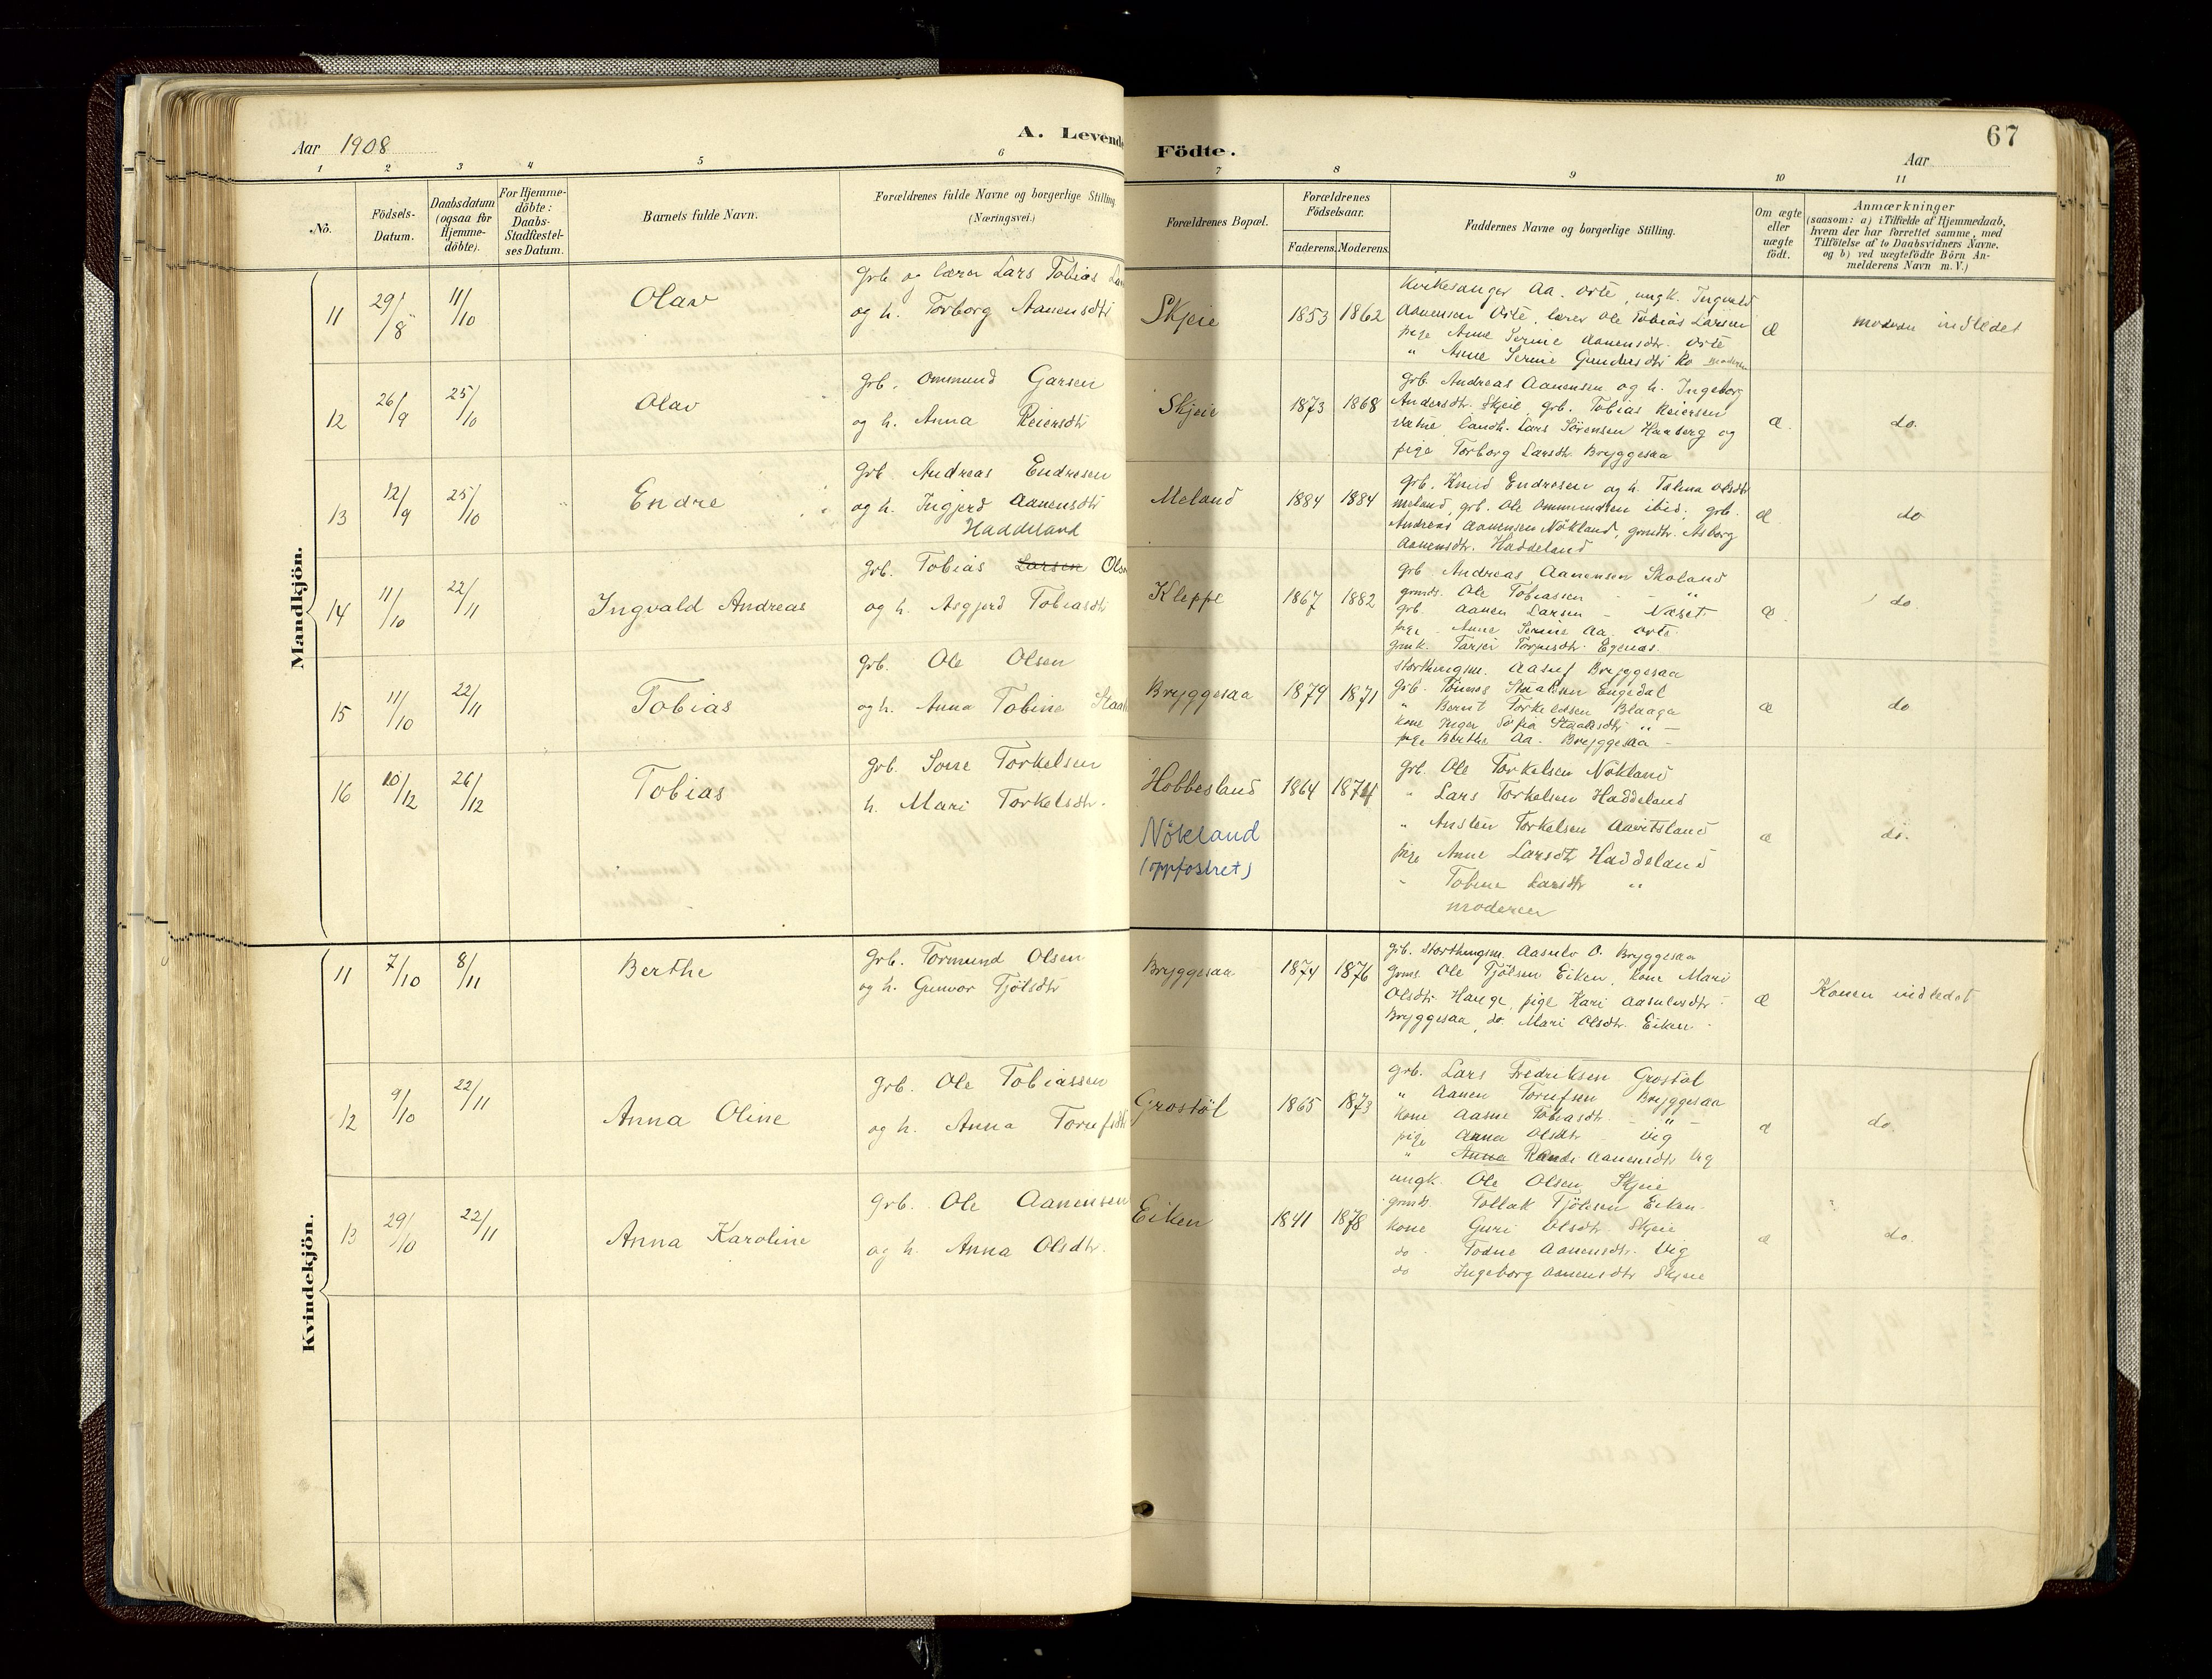 67
Aar 1908
A. Levende Födte.
Aar
1 2 3 4 5 6 7 8 9 10 11
No.
Födsels-Datum.
Daabsdatum (ogsaa for Hjemme-döbte).
For Hjemme-döbte: Daabs-Stadfæstel-ses Datum.
Barnets fulde Navn.
Forældrenes fulde Navne og borgerlige Stilling (Næringsvei.)
Forældrenes Bopæl.
Forældrenes Födselsaar.
Faderens. Moderens.
Faddernes Navne og borgerlige Stilling.
Om ægte eller uægte födt.
Anmærkninger
(saasom: a) i Tilfælde af Hjemmedaab,
hvem der har forrettet samme, med
Tilföielse af to Daabsvidners Navne.
og b) ved uægtefödte Börn An-
melderens Navn m.V.)
Mandkjön.
11 29/8 11/10 Olav
Grb. og lærer Lars Tobias
og h. Torborg Aanensdtr
Skjeie 1853 1862
Kirkesanger Aa. Orte, ungk. Ingvald
Aanensen Orte, lærer Ole Tobias Larsen
pige Anne Serine Aanensdtr. Orte
" Anne Serine Gundersdtr Ro moderen
æ
moderen indledet
12 26/9 25/10 Olav
grb. Ommund Garsen
og h. Anna Reiersdtr
Skjeie 1873 1868
Grb. Andreas Aanensen og h. Ingeborg
Andersdtr. Skjeie, grb. Tobias Reiersen
Vatne landh. Lars Sörensen Haaberg og
pige Torborg Larsdtr Bryggesaa
æ.
do.
13 12/9 25/10 Endre
Grb Andreas Endresen
og h. Ingjerd Aanensdtr
Haddeland
Meland 1884 1884
grb. Knud Endresen og h. Talina Olsdtr
Meland, grb. Ole Ommundsen ibid; grb.
Andreas Aanensen Nökland, grmdtr. Asborg
Aanensdtr. Haddeland
æ.
do
14 11/10 22/11 Ingvald Andreas
Grb. Tobias Larsen Olsen
og h. Asgjerd Tobiasdtr
Kleppe 1867 1882
grb Andreas Aanensen Skoland
grmds. Ole Tobiassen - "
grb. Aanen Larsen - Næset
pige - Anne Serine Aa. Orte.
grmk. Tarjer Torjusdtr. Egenæs.
æ.
do
15 11/10 22/11 Tobias
grb. Ole Olsen
og h. Anna Tobine
Bryggesaa 1879 1871
Storthingsm. Aasulf Bryggesaa
grb. Tönnes Staalsen Engedal
" Bernt Torkeldsen Blaaga
kone Inger Sofia Staalesdtr " -
pige Berthe Aa. Bryggesaa -
æ
do
16 10/12 26/12 Tobias
grb. Sone Torkelsen
h. Mari Torkelsdtr.
Hobbesland 1864 1874
Nökland
(oppfostret)
Grb. Ole Torkelsen Nökland
" Lars Torkelsen Haddeland
" Ansten Torkelsen Aavitsland
pige Anne Larsdtr Haddeland
- Tobine Larsdtr "
moderen
æ
do.
Kvindekjön.
11 7/10 8/11 Berthe
Grb. Tormund Olsen
og h. Gunvor Tjölsdtr
Bryggesaa 1874 1876
grb. Storthingsm. Aasulv O. Bryggesaa
grms. Ole Tjölsen Eiken, kone Mari
Olsdtr. Hauge, pige Kari Aasulvsdtr.
Bryggesaa, do. Mari Olsdtr. Eiken.
æ
Konen indledet
12 9/10 22/11 Anna Oline
Grb. Ole Tobiassen
og h. Anna Torufsdtr
Grostöl 1865 1873
grb. Lars Fredriksen Grostöl
" Aanen Torufsen Bryggesaa
kone Aasne Tobiasdtr. - " -
pige Anna Olsdtr - Vig
" Anna Randi Aanensdtr Vig
æ
do.
13 29/10 22/11 Anna Karoline
Grb. Ole Aanensen
og h. Anna Olsdtr.
Eiken 1841 1878
ungk. Ole Olsen Skjeie
grmds. Tollak Tjölsen Eiken.
kone Guri Olsdtr. Skjeie
do. Todne Aanensdtr. Vig
do Ingeborg Aanensdtr Skjeie
æ
do.